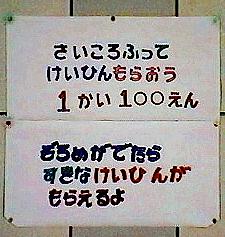 さいころふって
けいひんもらおう
1かい100えん
ぞろめがでたら
すきなけいひんが
もらえるよ